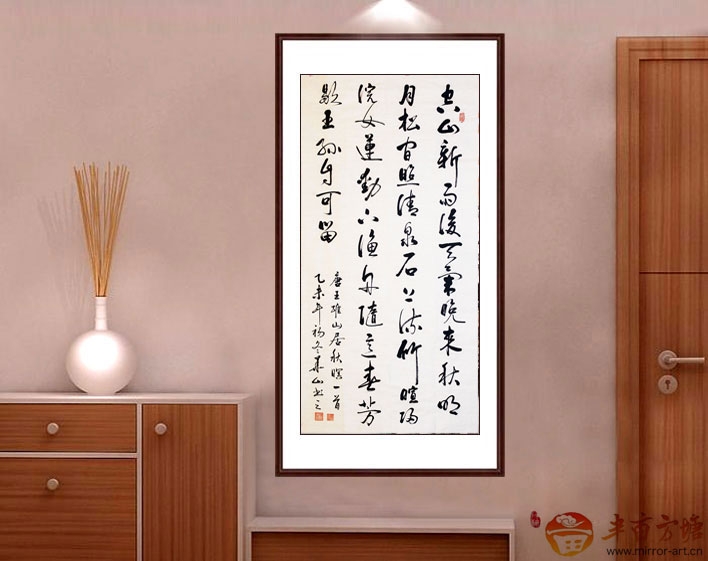 空山新雨後天氣晚来秋明
月松间照清泉石上流竹喧歸
浣女蓮動下漁舟隨意春芳
歇王孫自可留
唐王維山居秋暝一首
乙未年初冬華山书之
半亩方塘
www.mirror-art.cn